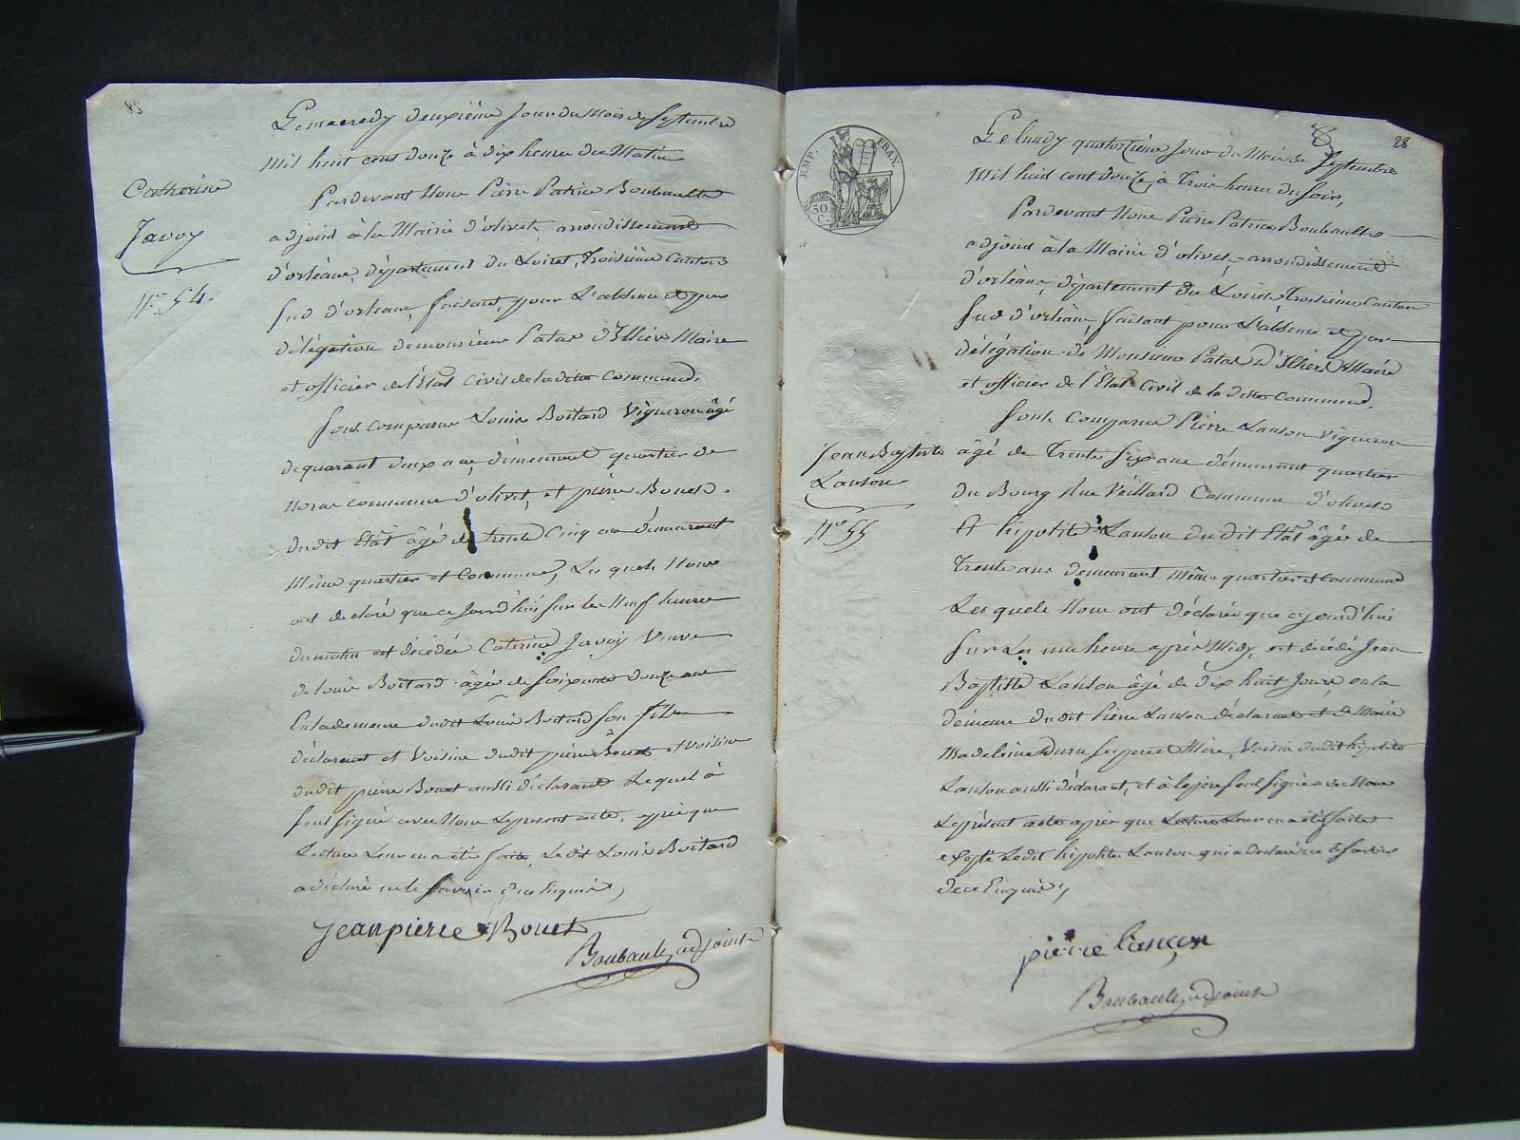 Catherine
Javoy
N.º 54.
Le mercredy deuxième Jour du Mois de Septembre
mil huit cent douze à dix heures du Matin
Pardevant Nous Pierre Patrice Boubault
adjoint à la Mairie d'olivet arrondissement
d'orléans, département du Loiret, Troisième Canton
Sud d'orleans, faisant pour L'absence et par
délégation de monsieur Patas D'Illiers Maire
et officier de l'Etat Civil de la ditte Commune.
Sont comparus Louis Boitard Vigneron âgé
de quarant deux ans, démeurant quartier de
commune d'olivet, et pierre Bouet
dudit Etat âgé de trente Cinq ans démeurant
Même quartier et Commune, Les quels Nous
ont déclaré que ce Jourd'hui sur les Neuf heures
du matin est décédée Caterine Javoy Veuve
de Louis Boitard âgée de Soixante douze ans
En la demeure dudit Louis Boitard son fils
déclarant et Voisine dudit pierre Bouet et voisine
dudit pierre Bouet aussi déclarant Lequel à
Seul signé avec Nous Le present acte, après que
Lecture Leur en a été faite, Le dit Louis Boitard
a déclaré ne le savoir de ce Enquis,
Jean pierre Bouet
Boubault, adjoint
28
EMP. FRAN.
50 C.
Jean Baptiste
Lanson
N.º 55
Le lundy quatorzième Jour du Mois de Septembre
Mil huit cent douze, à Trois heures du Soir,
Pardevant Nous Pierre Patrice Boubault
adjoint à la Mairie d'olivet arrondissement
d'orléans, département du Loiret, Troisième Canton
Sud d'orléans, faisant pour L'absence et par
délégation de Monsieur Patas D'Illiers Maire
et officier de l'Etat Civil de la ditte Commune.
Sont Comparus Pierre Lanson Vigneron
âgé de Trente Six ans démeurant quartier
du Bourg Rue Veillard Commune d'olivet
Et hipolite Lanson dudit Etat âgé de
Trente ans demeurant même quartier et Commune
Les quels Nous ont déclaré que cejourd'hui
Sur Les une heure après Midy, est décédé Jean
Baptiste Lanson âgé de dix huit Jours, en la
démeure dudit Pierre Lanson déclarant et de Marie
Madeleine Ses pere et Mère, Voisin dudit hipolite
Lanson aussi déclarant, et à le père seul signé avec Nous
Le présent acte après que Lecture Leur en a été faite
excepté Ledit hipolite Lanson qui a déclaré ne le savoir
de ce Enquis,
pierre lançon
Boubault, adjoint